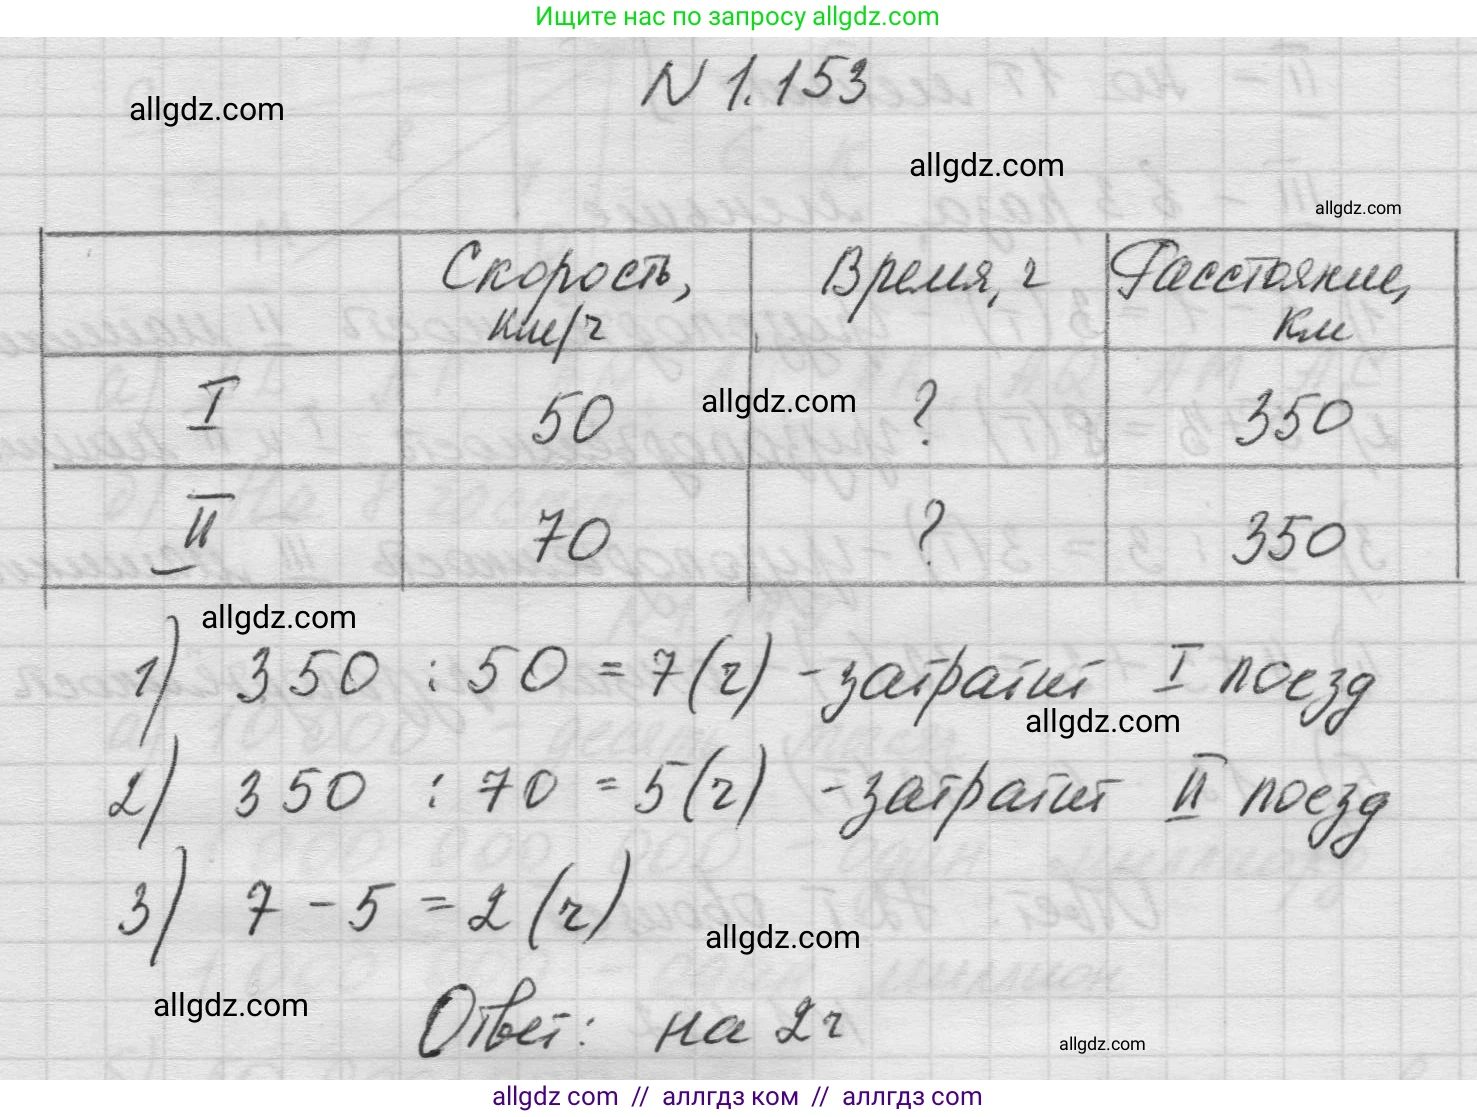 Ищите нас по запросу allgdz.com
N 1.153
allgdz.com
allgdz.com
allgdz.com
Скорость, км/ч Время, ч Расстояние, км
I 50 ? 350
allgdz.com
II 70 ? 350
allgdz.com
1) 350 : 50 = 7 (ч) - затратит I поезд
allgdz.com
2) 350 : 70 = 5 (ч) - затратит II поезд
3) 7 - 5 = 2 (ч)
allgdz.com
allgdz.com
Ответ: на 2 ч
allgdz.com
allgdz.com // аллгдз ком // аллгдз.com